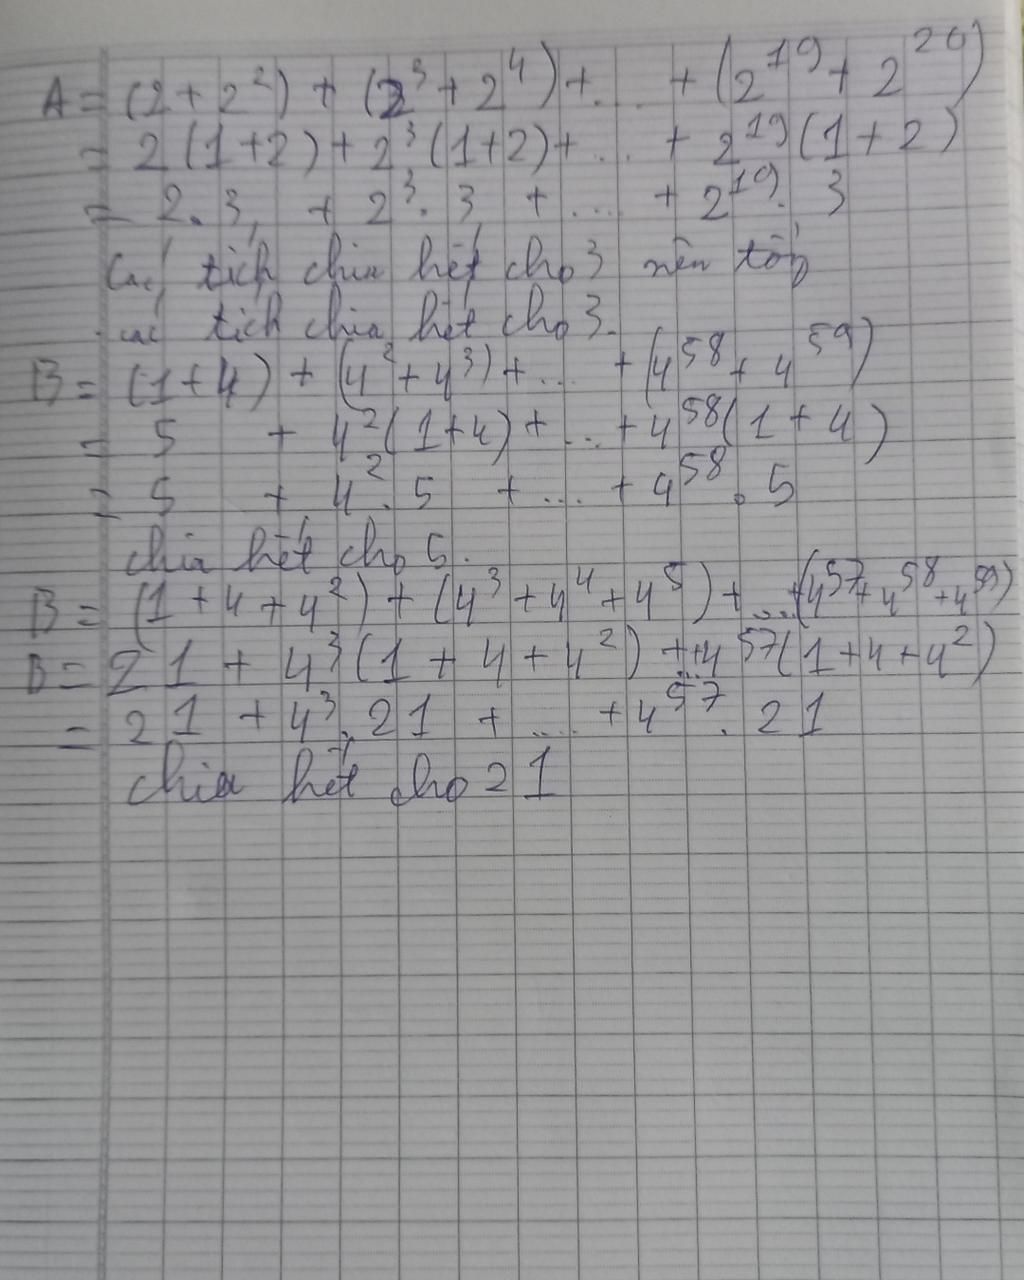 A = (2 + 2²) + (2³ + 2⁴) + ... + (2¹⁹ + 2²⁰)
= 2(1+2) + 2³(1+2) + ... + 2¹⁹(1+2)
= 2.3 + 2³.3 + ... + 2¹⁹.3
Các tích chia hết cho 3 nên tổng
các tích chia hết cho 3.
B = (1+4) + (4²+4³) + ... + (4⁵⁸ + 4⁵⁹)
= 5 + 4²(1+4) + ... + 4⁵⁸(1+4)
= 5 + 4².5 + ... + 4⁵⁸.5
chia hết cho 5.
B = (1+4+4²) + (4³+4⁴+4⁵) + ...+(4⁵⁷+4⁵⁸+4⁵⁹)
B = 21 + 4³(1+4+4²) + ...+4⁵⁷(1+4+4²)
= 21 + 4³.21 + ... + 4⁵⁷.21
chia hết cho 21